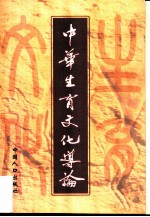 中華生育文化導論
中国人口出版社